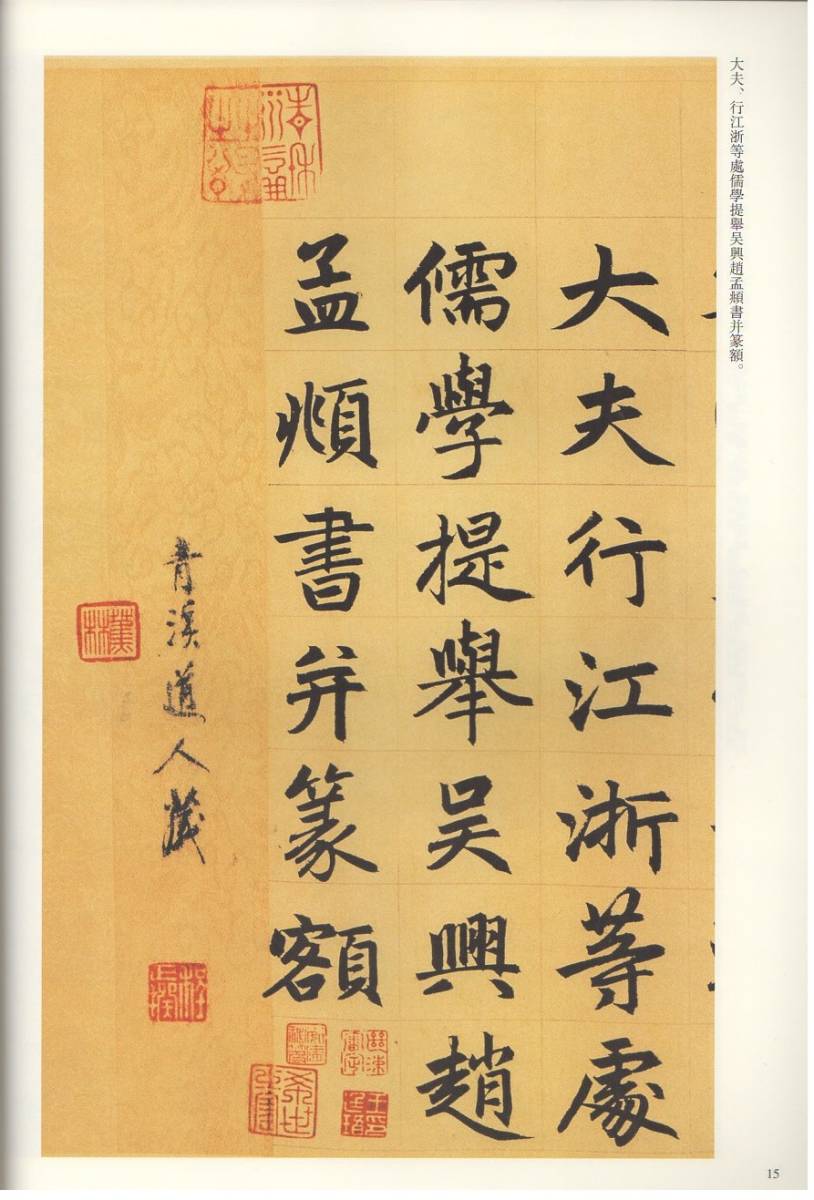 大夫、行江浙等處儒學提舉吴興趙孟頫書并篆額。
大夫行江浙等處
儒學提舉吴興趙
孟頫書并篆額
青溪道人藏
蕉林
15